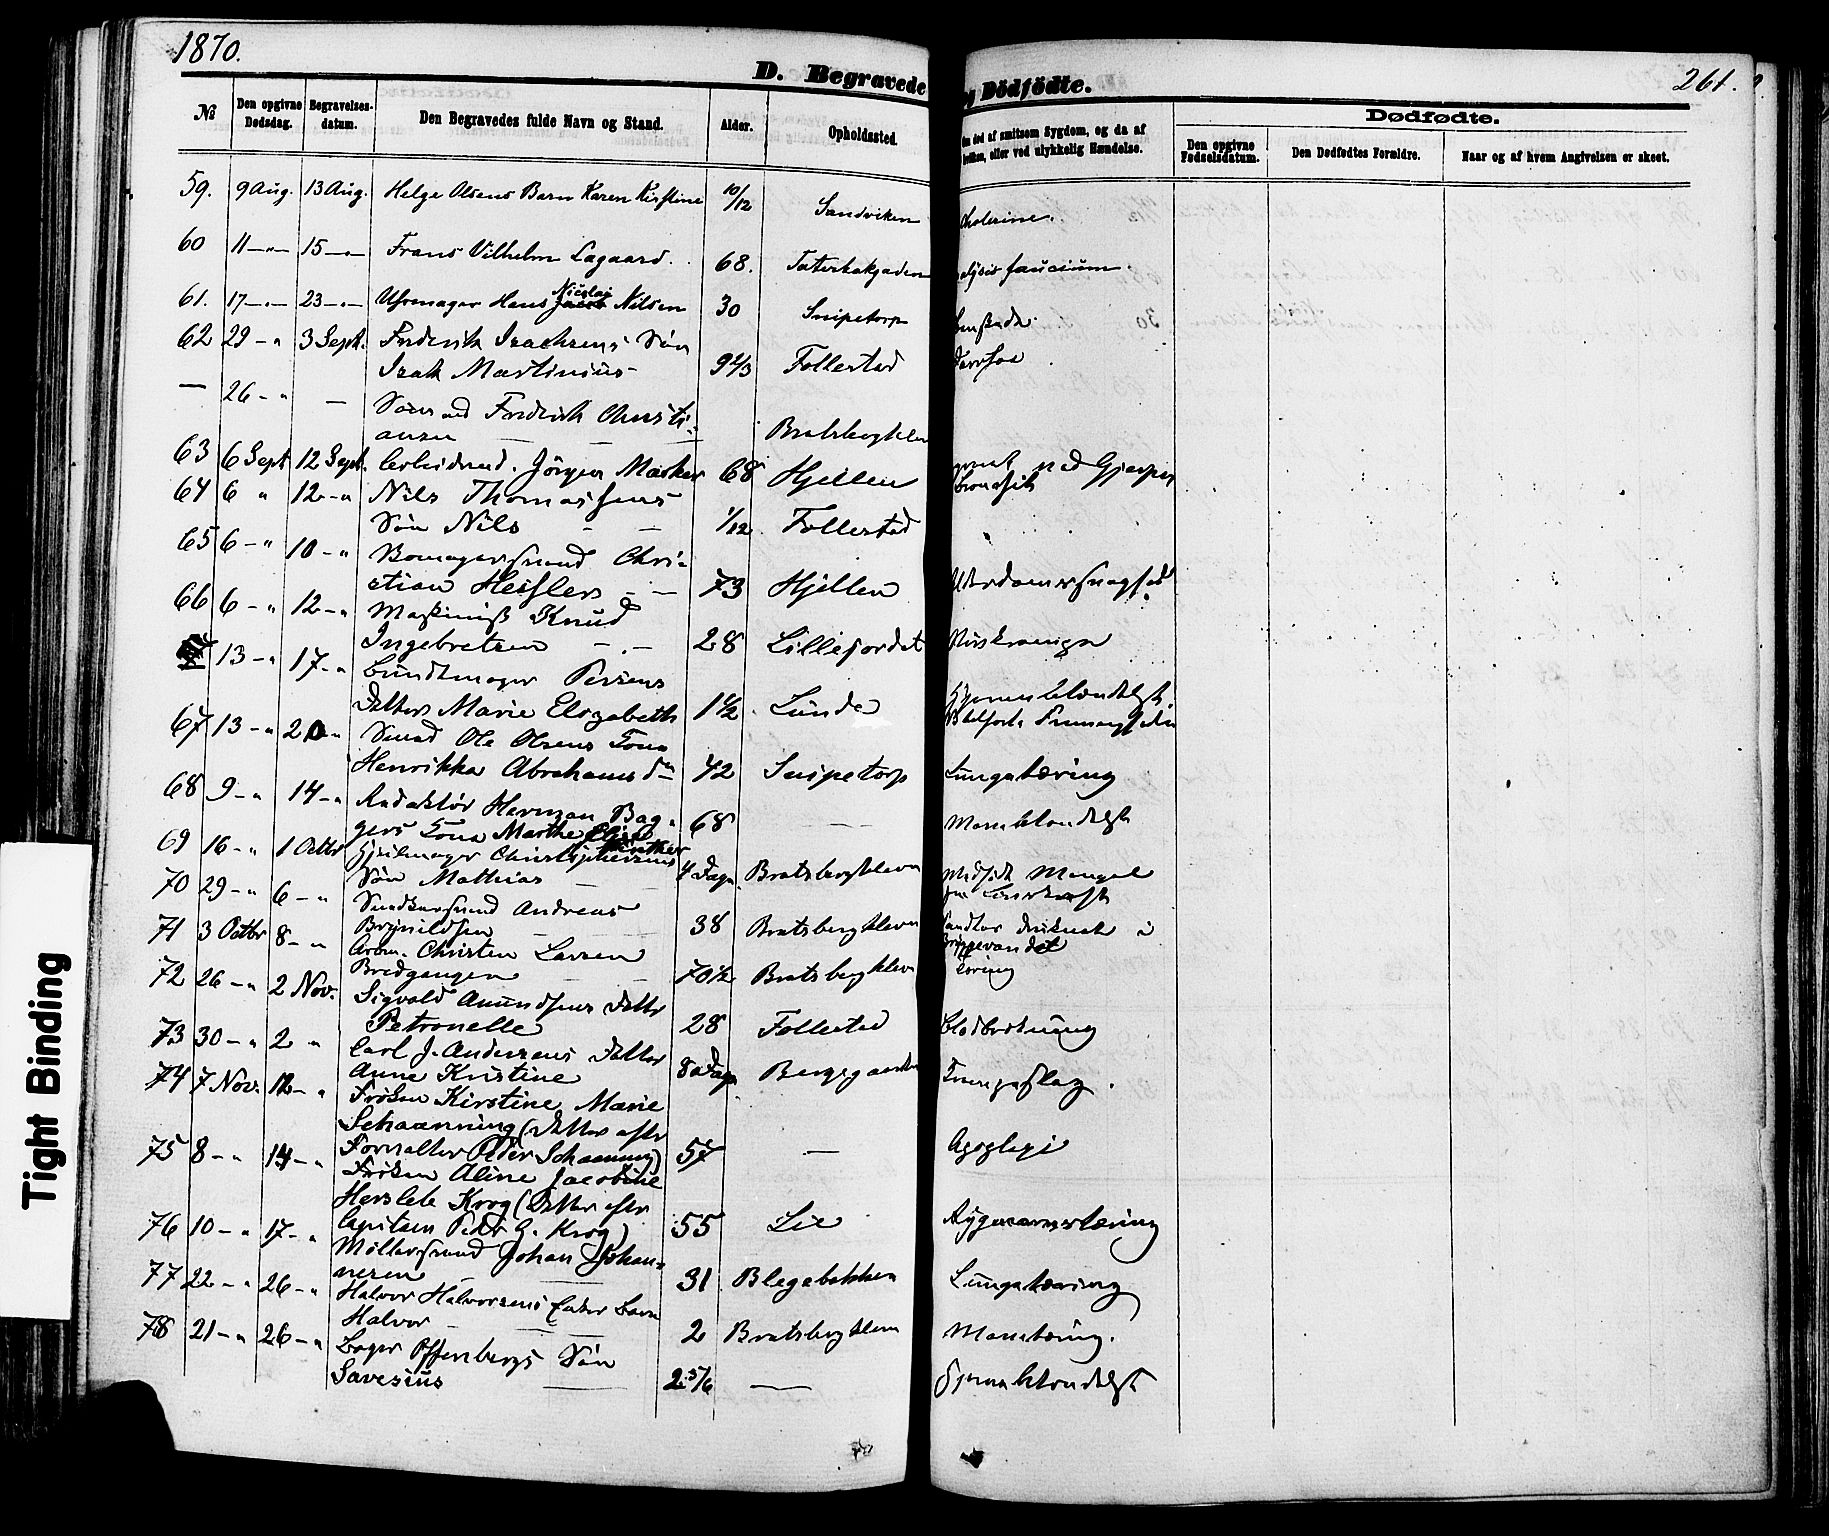 1870.
D. Begravede
g Dödfödte.
261.
No
Den opgivne Dødsdag.
Begravelses-datum.
Den Begravedes fulde Navn og Stand.
Alder.
Opholdssted.
død af smitsom Sygdom, og da af
eller ved ulykkelig Hændelse.
Dødfødte.
Den opgivne Fødselsdatum.
Den Dødfødtes Forældre.
Naar og af hvem Angivelsen er skeet.
59. 9 Aug. 13 Aug. Helge Olsens Barn Karen Kirstine 10/12 Sandviken Cholerine.
60 11 -"- 15 -"- Frans Vilhelm Lagaard. 68. faucium.
61. 17 -"- 23 -"- Uhrmager Hans Nicolai Nilsen 30 Snipetorp
62 29 -" 3 Sept. Fredrik Isachsens Søn
Isak Martinius 9 2/3 Follestad
— 26 -" — Fredrik Christi-
ansen — — Bratsbergkleven
63 6 Sept 12 Sept. Arbeidsmd. Jörgen Marker 68 Hjellen ved Gjerpen
64 6 " 12 -" Nils Thomassens
Søn Nils — — 1/12 Follestad
65 6 -" 10 -" Chri-
stian — — 73 Hjellen Alderdomssvaghed
66 6 -" 12 -" Maskinist Knud
Ingebretsen — . — 28 Lillejordet
13 -" 17 -" Bundtmager Persens
Datter Marie Elizabeth 1 1/2 Lunde Hjernebetændelse
67 13 -" 20 -" Smed Ole Olsens Kone
Henrikka Abrahamsdn 42 Snipetorp Lungetæring
68 9 -" 14 -" Redaktör Herman Bag-
gers Kone Marthe 68 — Mavebetændelse
69 16 -" 1 Octbr Hjulmager Christophersens
Søn Mathias — 4 Dage. Bratsbergkleven Medfødt Mangel
paa Livskraft
70 29 -" 6 -" Andreas
Brynildsen — 38 Bratsbergkleven druknet i
Bryggevandet
71 3 Octbr 8 -" Arbm. Christen Larsen
Bredgangen — — 70 1/2 Bratsbergkleven Tæring
72 26 -" 2 Nov. Sigvald Amundsens Datter
Petronelle 28 Follestad
73 30 -" 2 " Carl J. Andersens Datter
Anne Kristine 8 Dage
74 7 Nov. 12 -" Frøken Kirstine Marie
Schaanning (Datter efter
Forvalter Peder Schaanning) 57 — Apoplexi
75 8 -" 14 -" Frøken Aline Jacobine
Hersleb Krog (Datter efter
Capitain Peter G. Krog) 55 Lie Rygmarvstæring
76 10 -" 17 -" Møllersvend Johan Johan-
nesen — — 31 Blegebakken Lungetæring
77 22 -" 26 -" Halvor Halvorsens Barn
Halvor — — 2 Bratsbergkleven Mavetæring.
78 21 -" 26 -" Bager Offenbergs Søn
Savesius — 2 5/6 — Hjernebetændelse
Tight Binding